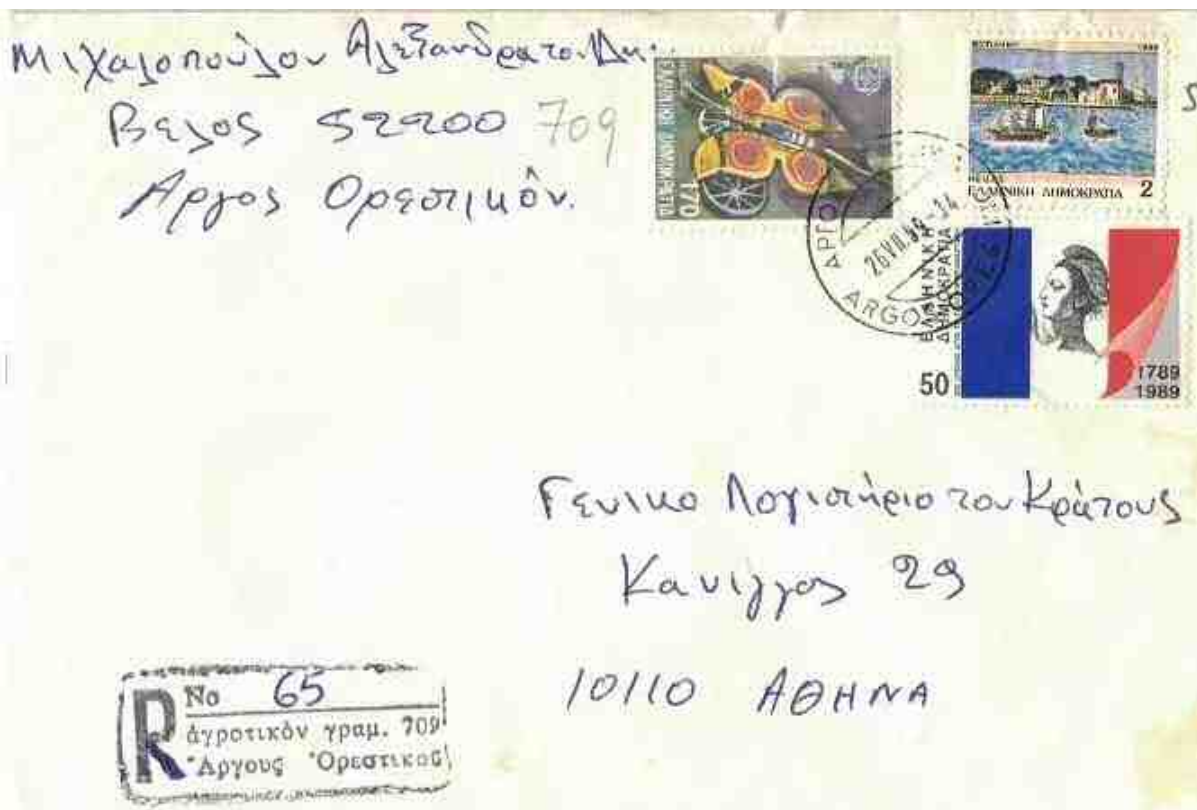 Μιχαλοπούλου Αλεξάνδρα του
Βέλος 52200 709
Άργος Ορεστικόν.
ΕΛΛΗΝΙΚΗ ΔΗΜΟΚΡΑΤΙΑ
170
ΕΛΛΗΝΙΚΗ ΔΗΜΟΚΡΑΤΙΑ 2
ARGOS
26 VII
ΕΛΛΗΝΙΚΗ
ΔΗΜΟΚΡΑΤΙΑ
50
1789
1989
Γενικο Λογιστήριο του Κράτους
Κανιγγος 29
10110 ΑΘΗΝΑ
R No 65
ἀγροτικὸν γραμ. 709
Ἄργους Ὀρεστικοῦ